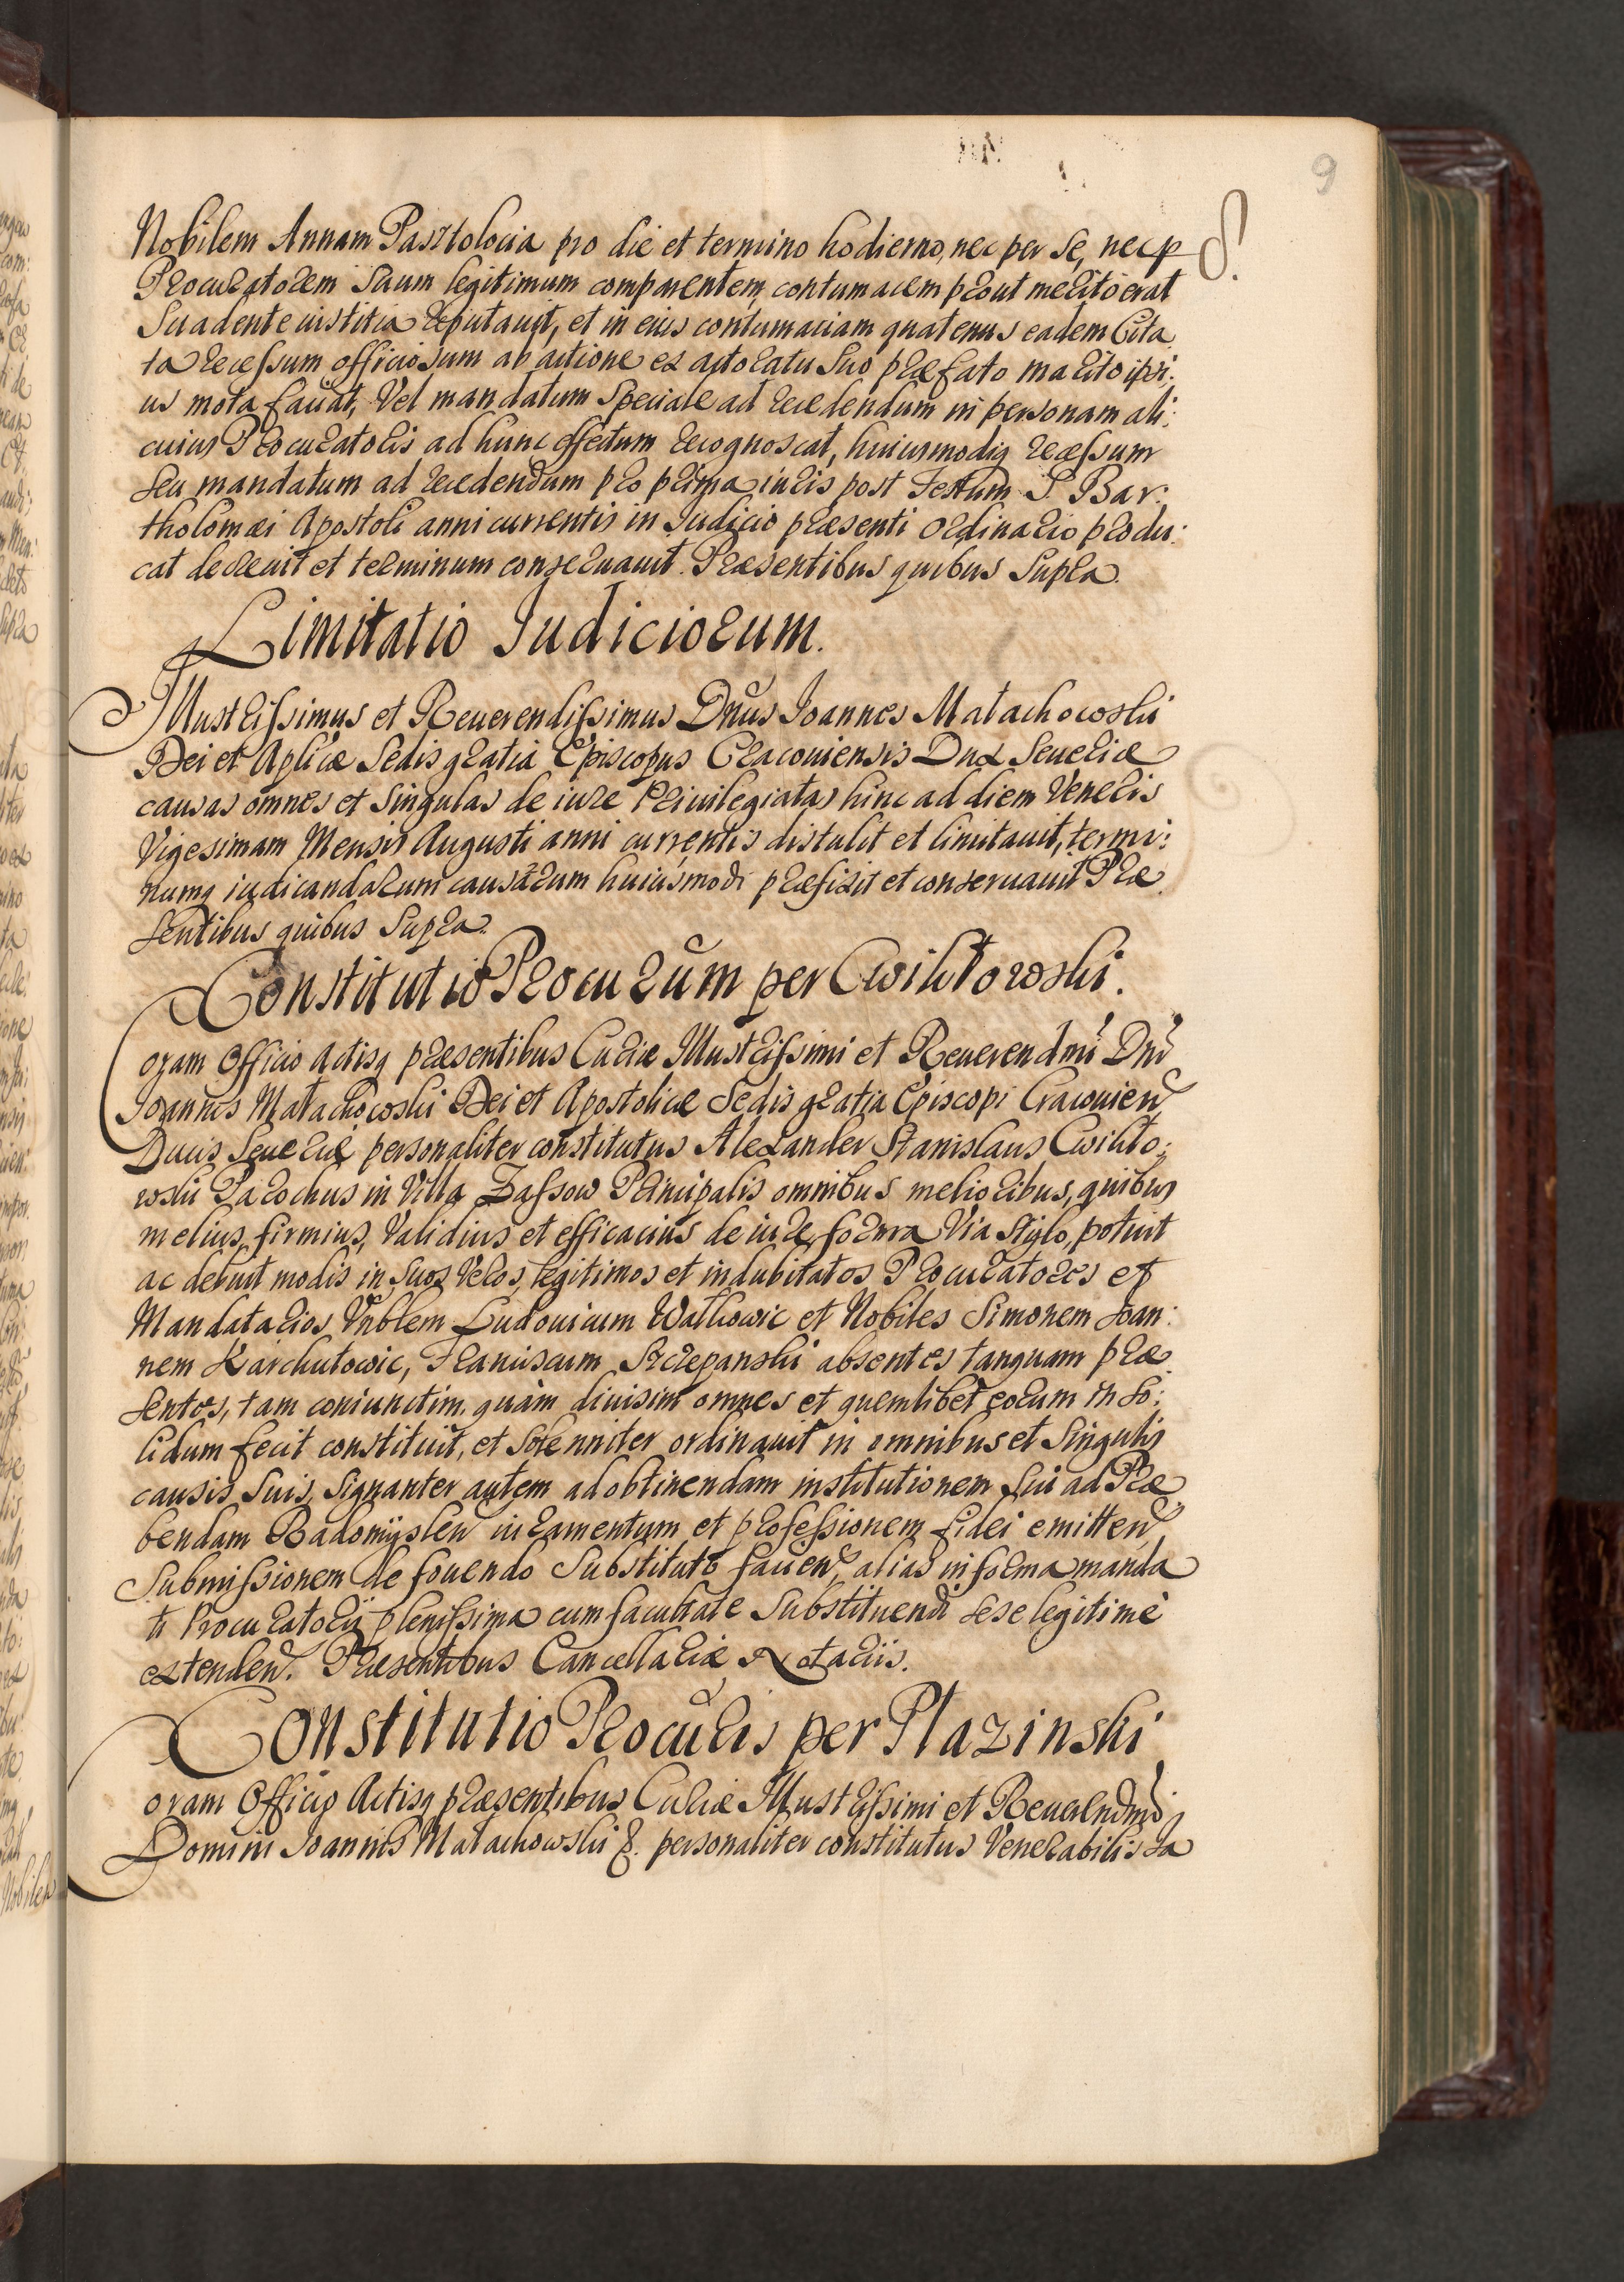 9
8.
Nobilem Annam Pasztolocia pro die et termino hodierno, nec per se, nec p
Procuratorem suum legitimum comparentem, contumacem prout merito erat
Suadente iustitia reputauit, et in eius contumaciam quatenus eadem Cita
ta recessum officiosum ab actione ex actoratu suo præfato marito ipsi:
us mota faciat, Vel mandatum speciale ad recedendum in personam ali:
cuius Procuratoris ad hunc effectum recognoscat, huiusmodiq recessum
seu mandatum ad recedendum pro prima iuris post Festum S. Bar:
tholomæi Apostoli anni currentis in Iudicio præsenti ordinario produ:
cat decreuit et terminum conseruauit. Præsentibus quibus supra.
Limitatio Iudiciorum.
Illustrissimus et Reuerendissimus Dnus Ioannes Małachowski
Dei et Aplicæ Sedis gratia Episcopus Cracouiensis Dux Seueriæ
causas omnes et singulas de iure Priuilegiatas hinc ad diem Veneris
Vigesimam Mensis Augusti anni currentis distulit et limitauit, termi:
numq iudicandarum causarum huiusmodi præfixit et conseruauit Præ
sentibus quibus supra.
Constitutio Procurum per Cwiktowski.
Coram Officio Actisq præsentibus Curiæ Illustrissimi et Reuerendmi Dni
Ioannis Małachowski Dei et Apostolicæ Sedis gratia Episcopi Cracouien
Ducis Seueriæ personaliter constitutus Alexander Stanislaus Cwikto:
wski Parochus in Villa Zassow Principalis omnibus melioribus, quibus
melius, firmius, Validius et efficacius de iure, forma Via Stylo, potuit
ac debuit modis in suos Veros, legitimos et indubitatos Procuratores et
Mandatarios Vnblem Ludouicum Wałkowic et Nobiles Simonem Ioan:
nem Karchutowic, Franciscum Szczepanski absentes tanquam præ
sentes, tam coniunctim quàm diuisim omnes et quemlibet eorum in so:
lidum fecit constituit, et solenniter ordinauit in omnibus et singulis
causis suis, signanter autem ad obtinendam institutionem sui ad Præ
bendam Radomyslen iuramentum et professionem fidei emitten,
Submissionem de fouendo Substituto facien, alias in forma manda
ti Procuratorij plenissima cum facultate Substituendi sese legitimè
extenden. Præsentibus Cancellariæ Notariis.
Constitutio Procuris per Płazinski
Coram Officio Actisq præsentibus Curiæ Illustrissimi et Reuerendmi
Domini Ioannis Małachowski &. personaliter constitutus Venerabilis Ia